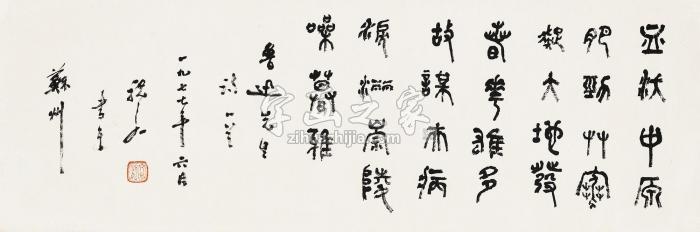 血沃中原
肥勁艸寒
凝大地發
春華雄多
故謀夫病
淚灑崇陵
噪暮雅
魯迅先生
詩一首
一九七七年六月
蘇州
字画之家
zihuazhijia.com